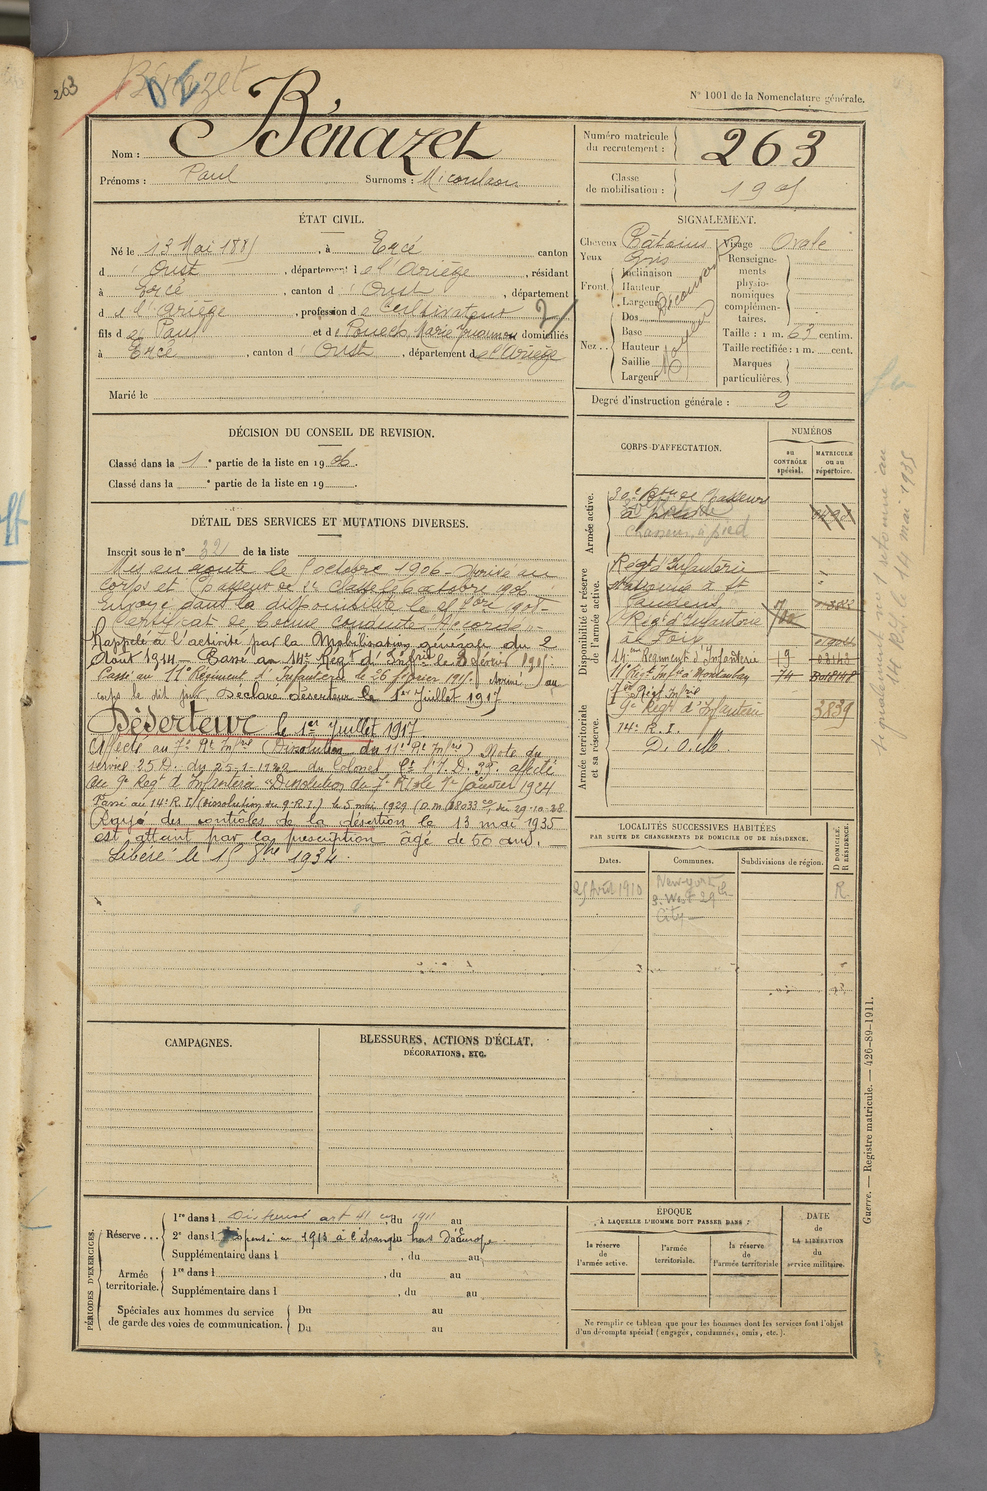 263
Bénazet
N° 1001 de la Nomenclature générale.
Nom : Bénazet
Prénoms : Paul Surnoms : Micoulaou
Numéro matricule du recrutement : 263
Classe de mobilisation : 1905
ÉTAT CIVIL.
Né le 13 Mai 1885, à Ercé canton
d' Oust, département de l'Ariège, résidant
à Ercé, canton d' Oust, département
de l'Ariège, profession de Cultivateur
fils de Paul et de Pouech Marie domiciliés
à Ercé, canton d' Oust, département de l'Ariège
Marié le
SIGNALEMENT.
Cheveux Châtains Visage Ovale
Yeux Gris
Front. Inclinaison
Hauteur
Largeur
Nez.. Dos
Base
Hauteur
Saillie
Largeur
Moyen
Renseignements physionomiques complémentaires.
Taille : 1 m. 63 centim.
Taille rectifiée : 1 m. cent.
Marques particulières.
Degré d'instruction générale : 2
DÉCISION DU CONSEIL DE REVISION.
Classé dans la 1e partie de la liste en 1906.
Classé dans la e partie de la liste en 19 .
DÉTAIL DES SERVICES ET MUTATIONS DIVERSES.
Inscrit sous le n° 32 de la liste
Mis en route le octobre 1906 - Arrivé au
corps et Chasseur de 2e classe octobre 1906
Envoyé dans la disponibilité le 1908 -
Certificat de bonne conduite "Accordé" -
Rappelé à l'activité par la Mobilisation générale du 2
Août 1914 - Passé au 14e Régt d'Infrie le 3 février 1915.
Passé au 11e Régiment d'Infanterie le 26 février 1915. Arrivé au
corps le dit jour Déclaré déserteur le 1er Juillet 1917
Déserteur le 1er Juillet 1917.
Affecté au 7e Rt Infrie (Dissolution du 11e Rt Infrie) Note de
service 25 D. du 25-1-1922 du Colonel affecté
au 9e Regt d'Infanterie "Dissolution du 7e RI" le 1er Janvier 1924
Passé au 14e R.I. (Dissolution du 9e R.I.) le 5 mai 1929
Rayé des contrôles de la désertion le 13 mai 1935
est atteint par la prescription âgé de 50 ans.
Libéré le 15 8bre 1934.
CORPS D'AFFECTATION.
NUMÉROS
au CONTRÔLE spécial.
MATRICULE ou au répertoire.
Armée active.
30e Bton de Chasseurs
à pied
Chasseurs à pied
Disponibilité et réserve de l'armée active.
Régt d'Infanterie
à St
Gaudens
Régt d'Infanterie
de Foix
14e Régiment d'Infanterie 19
11e Régt Infie à Montauban 74
Armée territoriale et sa réserve.
7e Régt Infrie
9e Régt d'Infanterie 3839
14e R.I.
LOCALITÉS SUCCESSIVES HABITÉES
PAR SUITE DE CHANGEMENTS DE DOMICILE OU DE RÉSIDENCE.
Dates. Communes. Subdivisions de région. D DOMICILE. R RÉSIDENCE.
25 Avril 1910 New-york R
West 29th
City
CAMPAGNES.
BLESSURES, ACTIONS D'ÉCLAT, DÉCORATIONS, ETC.
PÉRIODES D'EXERCICES.
Réserve... 1re dans l Dispensé art 41 , du 1911 au
2e dans l Dispensé en 1913 à l'étranger hors d'Europe
Supplémentaire dans l , du au
Armée territoriale. 1re dans l , du au
Supplémentaire dans l , du au
Spéciales aux hommes du service de garde des voies de communication. Du au
Du au
ÉPOQUE
À LAQUELLE L'HOMME DOIT PASSER DANS :
la réserve de l'armée active.
l'armée territoriale.
la réserve de l'armée territoriale
DATE de LA LIBÉRATION du service militaire.
Ne remplir ce tableau que pour les hommes dont les services font l'objet
d'un décompte spécial (engagés, condamnés, omis, etc.).
Guerre. — Registre matricule. — 426-89-1911.
14 mai 1935